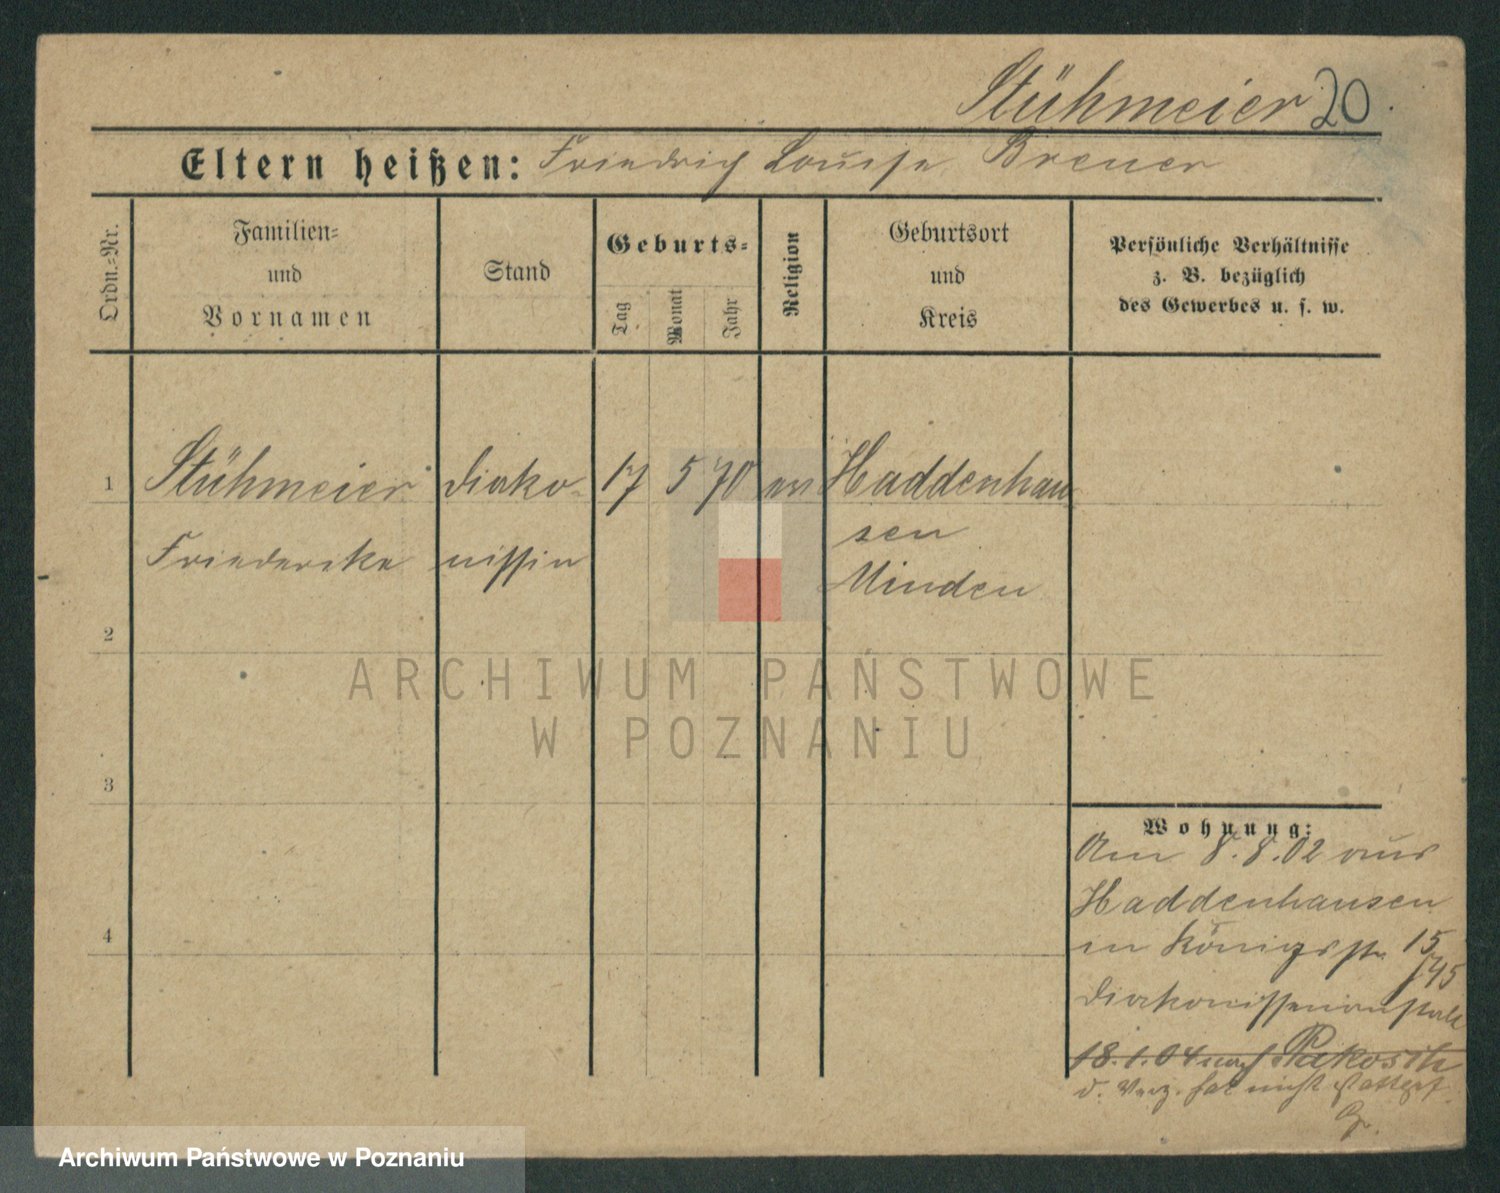 Stühmeier 20
Eltern heißen: Friedrich Louise Breuer
Ordn.-Nr.
Familien= und Vornamen
Stand
Geburts=
Tag Monat Jahr
Religion
Geburtsort und Kreis
Persönliche Verhältnisse
z. B. bezüglich
des Gewerbes u. s. w.
1 Stühmeier Diako- 17 5 70 ev Haddenhau
sen
Friedericke nissin
Minden
2
3
4
ARCHIWUM PAŃSTWOWE
W POZNANIU
Wohnung:
Am 8. 8. 02 aus
Haddenhausen
in Königsstr. 15
/45
Diakonissenanstalt
18.1.04 nach Pakosch
d. Verz. hat nicht stattgef.
Archiwum Państwowe w Poznaniu